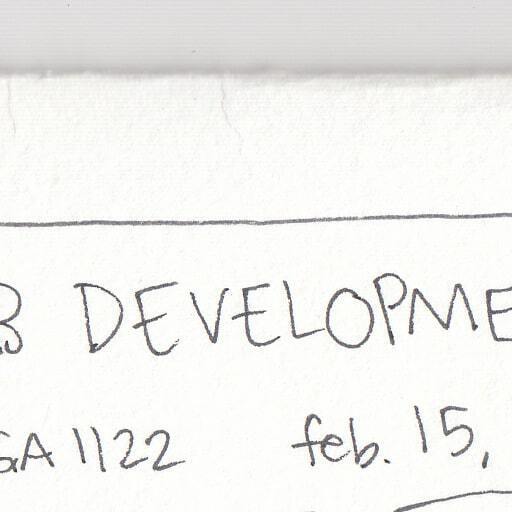 B DEVELOPME
GA 1122 feb. 15,